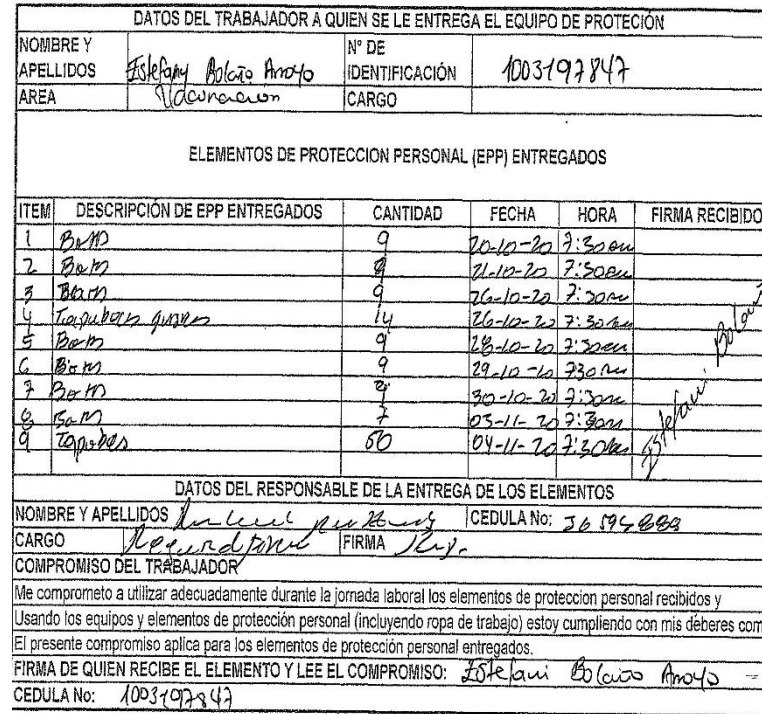 DATOS DEL TRABAJADOR A QUIEN SE LE ENTREGA EL EQUIPO DE PROTECIÓN
NOMBRE Y APELLIDOS Estefany Bolaño Arroyo Nº DE IDENTIFICACIÓN 1003197847
AREA Vacunacion CARGO
ELEMENTOS DE PROTECCION PERSONAL (EPP) ENTREGADOS
ITEM DESCRIPCIÓN DE EPP ENTREGADOS CANTIDAD FECHA HORA FIRMA RECIBIDO
1 9 20-10-20 7:30
2 21-10-20 7:30
3 9 26-10-20 7:30
4 14 26-10-20 7:30
5 9 28-10-20 7:30
6 9 29-10-20 730
7 30-10-20 7:30
8 7 03-11-20 7:30
9 50 04-11-20 7:30
Estefani Bolaño
DATOS DEL RESPONSABLE DE LA ENTREGA DE LOS ELEMENTOS
NOMBRE Y APELLIDOS CEDULA No:
CARGO FIRMA
COMPROMISO DEL TRABAJADOR
Me comprometo a utilizar adecuadamente durante la jornada laboral los elementos de proteccion personal recibidos y
Usando los equipos y elementos de protección personal (incluyendo ropa de trabajo) estoy cumpliendo con mis deberes com
El presente compromiso aplica para los elementos de protección personal entregados.
FIRMA DE QUIEN RECIBE EL ELEMENTO Y LEE EL COMPROMISO: Estefani Bolaño Arroyo
CEDULA No: 1003197847